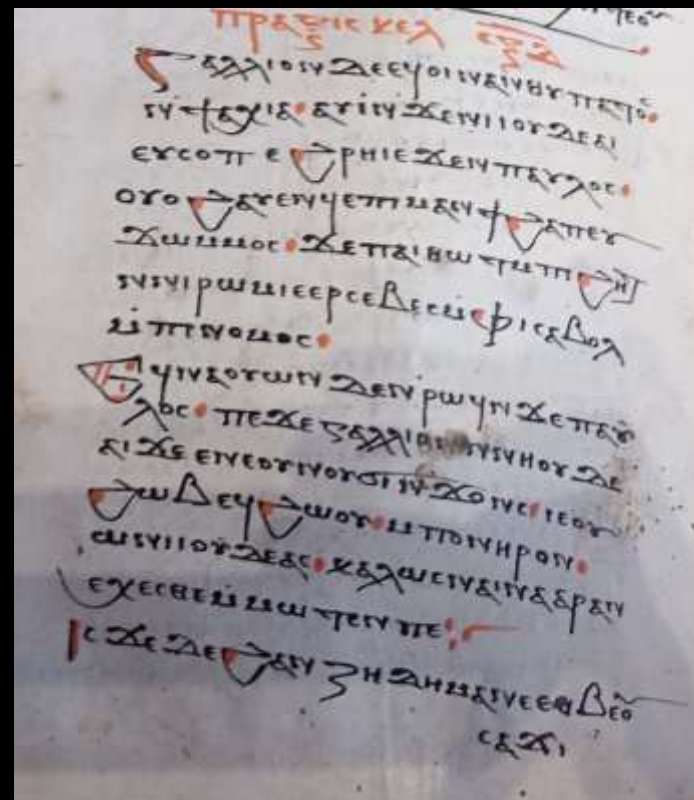 ⲡⲣⲁⲝⲓⲥ ⲕⲉⲗ
ⲅⲁⲗⲗⲓⲟⲛ ⲇⲉ ⲉϥⲟⲓ ⲛⲁⲛⲑⲩⲡⲁⲧⲟⲥ
ⲛϯⲁⲭⲓⲁ ⲁⲩⲓ ⲛϫⲉ ⲛⲓⲓⲟⲩⲇⲉⲁⲓ
ⲉⲩⲥⲟⲡ ⲉϩⲣⲏⲓ ⲉϫⲉⲛ ⲡⲁⲩⲗⲟⲥ
ⲟⲩⲟϩ ⲁⲩⲉⲛϥ ⲉⲡⲓⲙⲁ ⲛϯϩⲁⲡ ⲉⲩ
ϫⲱ ⲙⲙⲟⲥ ϫⲉ ⲡⲁⲓ ⲑⲱⲧ ⲙⲡϩⲏⲧ
ⲛⲛⲓⲣⲱⲙⲓ ⲉⲉⲣⲥⲉⲃⲉⲥ ⲙⲫϯ ⲥⲁⲃⲟⲗ
ⲙⲡⲓⲛⲟⲙⲟⲥ
ⲉϥⲛⲁⲟⲩⲱⲛ ⲇⲉ ⲛⲣⲱϥ ⲛϫⲉ ⲡⲁⲩ
ⲗⲟⲥ ⲡⲉϫⲉ ⲅⲁⲗⲗⲓⲟⲛ ⲛⲛⲏⲟⲩⲇⲉ
ⲁⲓ ϫⲉ ⲉⲛⲉ ⲟⲩⲛ ⲟⲩϭⲓ ⲛϫⲟⲛⲥ ⲓⲉ ⲟⲩ
ϩⲱⲃ ⲉϥϩⲱⲟⲩ ⲙⲡⲟⲛⲏⲣⲟⲛ
ⲱ ⲛⲓⲓⲟⲩⲇⲉⲁⲥ ⲕⲁⲗⲱⲥ ⲛⲁⲓⲛⲁⲁⲣⲁⲛ
ⲉⲭⲉⲥⲑⲉ ⲙⲙⲱⲧⲉⲛ ⲡⲉ
ⲓⲥϫⲉ ⲇⲉ ϩⲁⲛ ⲍⲏⲇⲏⲙⲁ ⲛⲉ ⲉⲑⲃⲉ ⲟⲩ
ⲥⲁϫⲓ